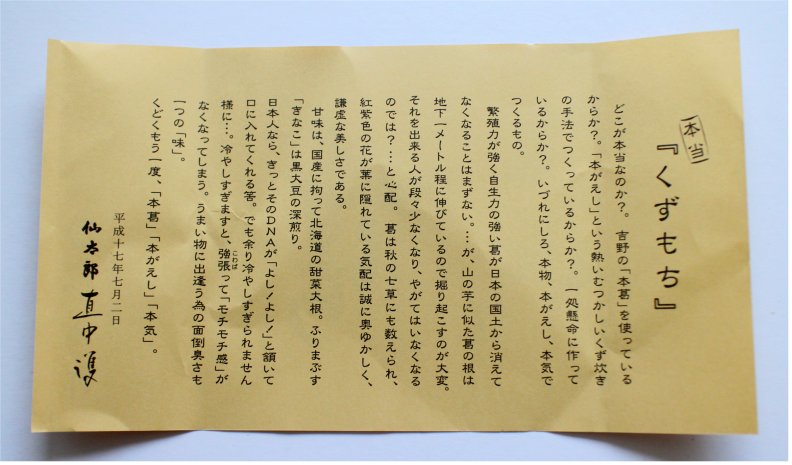 本当
『くずもち』
どこが本当なのか？。吉野の「本葛」を使っている
からか？。「本がえし」という熱いむつかしいくず炊き
の手法でつくっているからか？。一処懸命に作って
いるからか？。いづれにしろ、本物、本がえし、本気で
つくるもの。
繁殖力が強く自生力の強い葛が日本の国土から消えて
なくなることはまずない。…が、山の芋に似た葛の根は
地下一メートル程に伸びているので掘り起こすのが大変。
それを出来る人が段々少なくなり、やがてはいなくなる
のでは？…と心配。葛は秋の七草にも数えられ、
紅紫色の花が葉に隠れている気配は誠に奥ゆかしく、
謙虚な美しさである。
甘味は、国産に拘って北海道の甜菜大根。ふりまぶす
「きなこ」は黒大豆の深煎り。
日本人なら、きっとそのDNAが「よし！よし！」と頷いて
口に入れてくれる筈。でも余り冷やしすぎられません
様に…。冷やしすぎますと、強張って「モチモチ感」が
こわば
なくなってしまう。うまい物に出逢う為の面倒臭さも
一つの「味」。
くどくもう一度、「本葛」「本がえし」「本気」。
平成十七年七月二日
仙太郎 直中 護